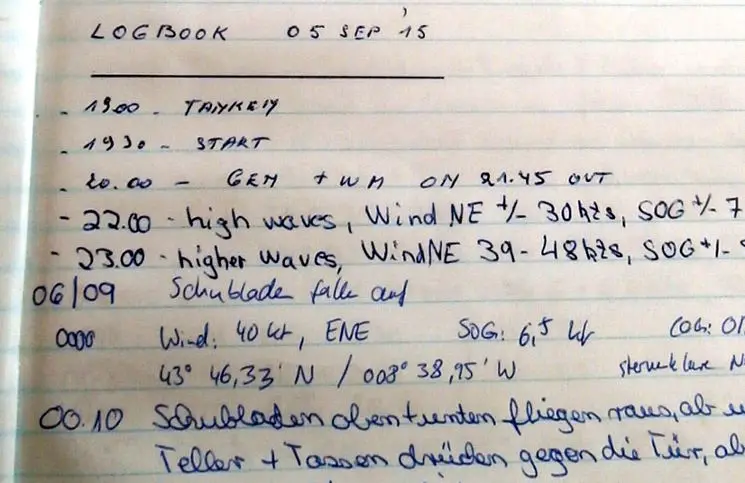 LOGBOOK 05 SEP '15
- 1900 - TANKEN
- 1930 - START
- 20.00 - GEN + WM ON 21.45 OUT
- 22.00 - high waves, Wind NE +/- 30kts, SOG +/- 7
- 23.00 - higher waves, Wind NE 39-48kts, SOG +/-
06/09 Schublade fällt auf
0000 Wind: 40 kt, ENE SOG: 6,5 kt COG: 01
43° 46,33' N / 008° 38,95' W sternenklare N
00.10 Schubladen oben + unten fliegen raus, ab
Teller + Tassen drücken gegen die Tür, ab